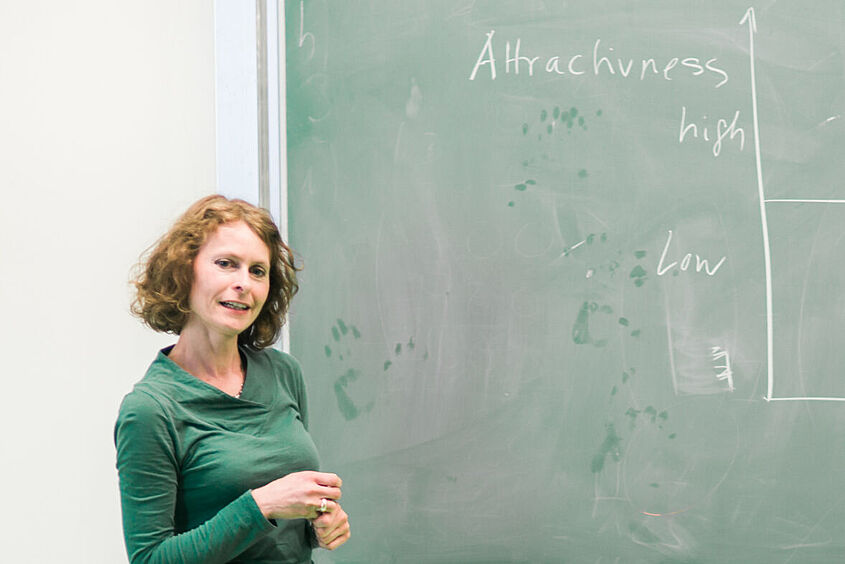 Attrachivness
high
Low